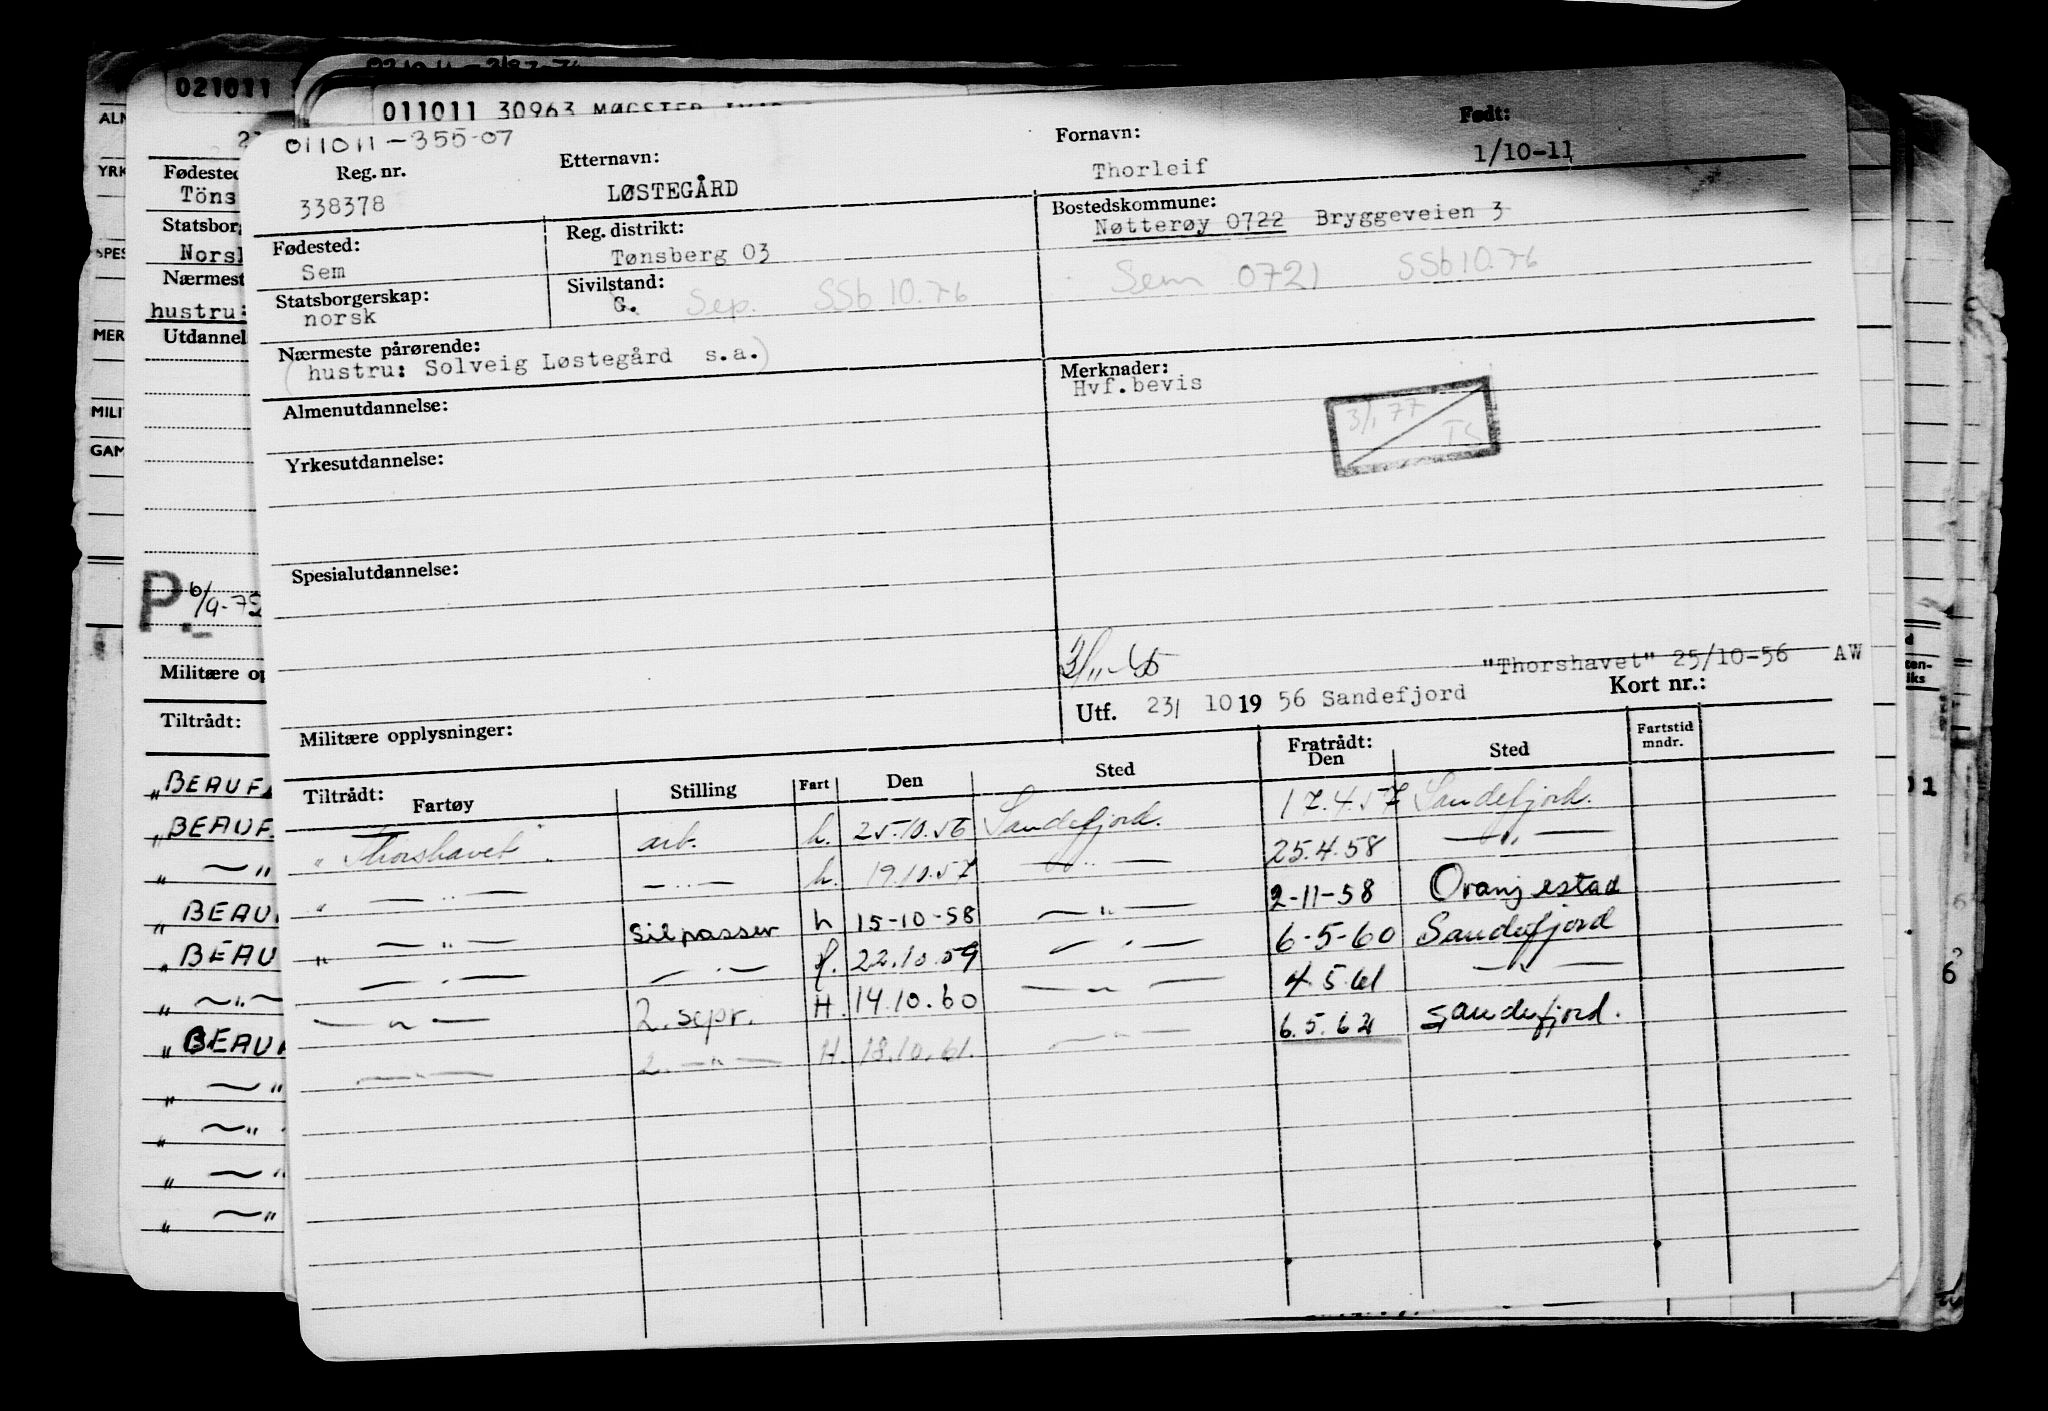 021011
011011 30963 MØGSTER
011011-355-07
Reg. nr.
338378
Etternavn:
LØSTEGÅRD
Fornavn:
Thorleif
Født:
1/10-11
Fødested:
Sem
Reg. distrikt:
Tønsberg 03
Bostedskommune:
Nøtterøy 0722 Bryggeveien 3
Sem 0721 SSb 10.76
Statsborgerskap:
norsk
Sivilstand:
G. Sep. SSb 10.76
Nærmeste pårørende:
(hustru: Solveig Løstegård s.a.)
Merknader:
Hvf.bevis
3/1 77
TS
Almenutdannelse:
Yrkesutdannelse:
Spesialutdannelse:
"Thorshavet" 25/10-56 AW
Utf. 23/ 10 19 56 Sandefjord Kort nr.:
Militære opplysninger:
Tiltrådt: Fartøy Stilling Fart Den Sted Fratrådt: Den Sted Fartstid mndr.
"Thorshavet" arb. h. 25.10.56 Sandefjord. 17.4.57 Sandefjord.
" — " — — " — h. 19.10.57 — " — 25.4.58 — " —
" — " — Silpasser h 15-10-58 — " — 2-11-58 Oranjestad
— " — — " — f. 22.10.59 — " — 6-5-60 Sandefjord
— " — 2. sepr. H. 14.10.60 — " — 4.5.61 — " —
— " — 2. — " — H. 18.10.61. — " — 6.5.62 Sandefjord.
Fødested
Töns
Statsborg
Norsk
Nærmest
hustru:
Utdannel
P. 6/9-75
Militære op
Tiltrådt:
"BEAUF
"BEAUF
" — "
BEAU
"BEAU
" — " —
"BEAU
" — "
" — "
" — "
" — "
ALM
YRK
SPES
MER
MILI
GAM